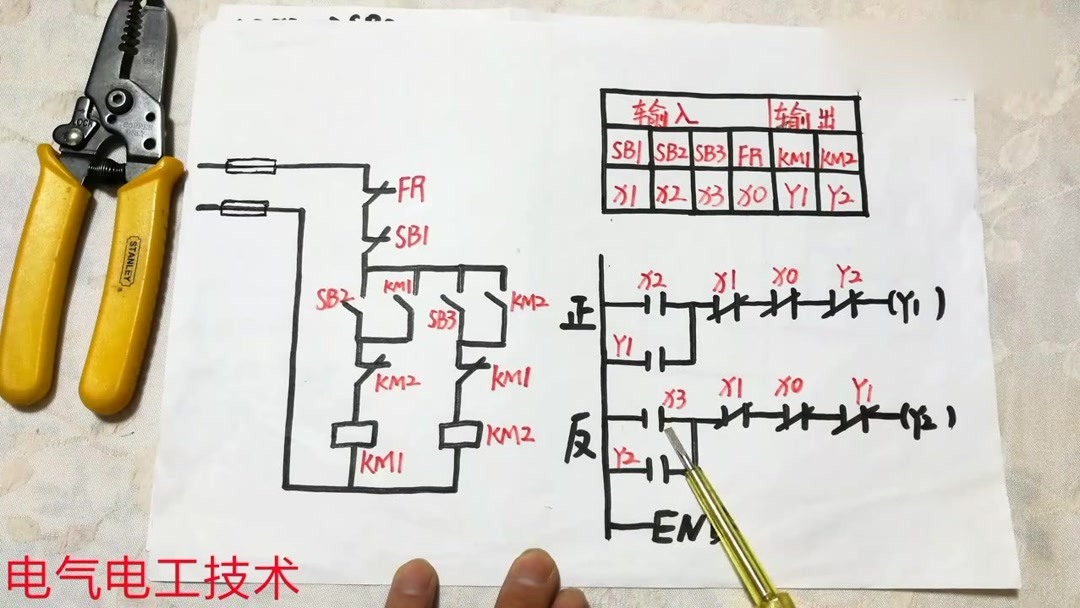 FR
SB1
SB2 KM1 SB3 KM2
KM2 KM1
KM1 KM2
输入 输出
SB1 SB2 SB3 FR KM1 KM2
X1 X2 X3 X0 Y1 Y2
X2 X1 X0 Y2
正 (Y1)
Y1
X3 X1 X0 Y1
反 (Y2)
Y2
END
STANLEY
电气电工技术